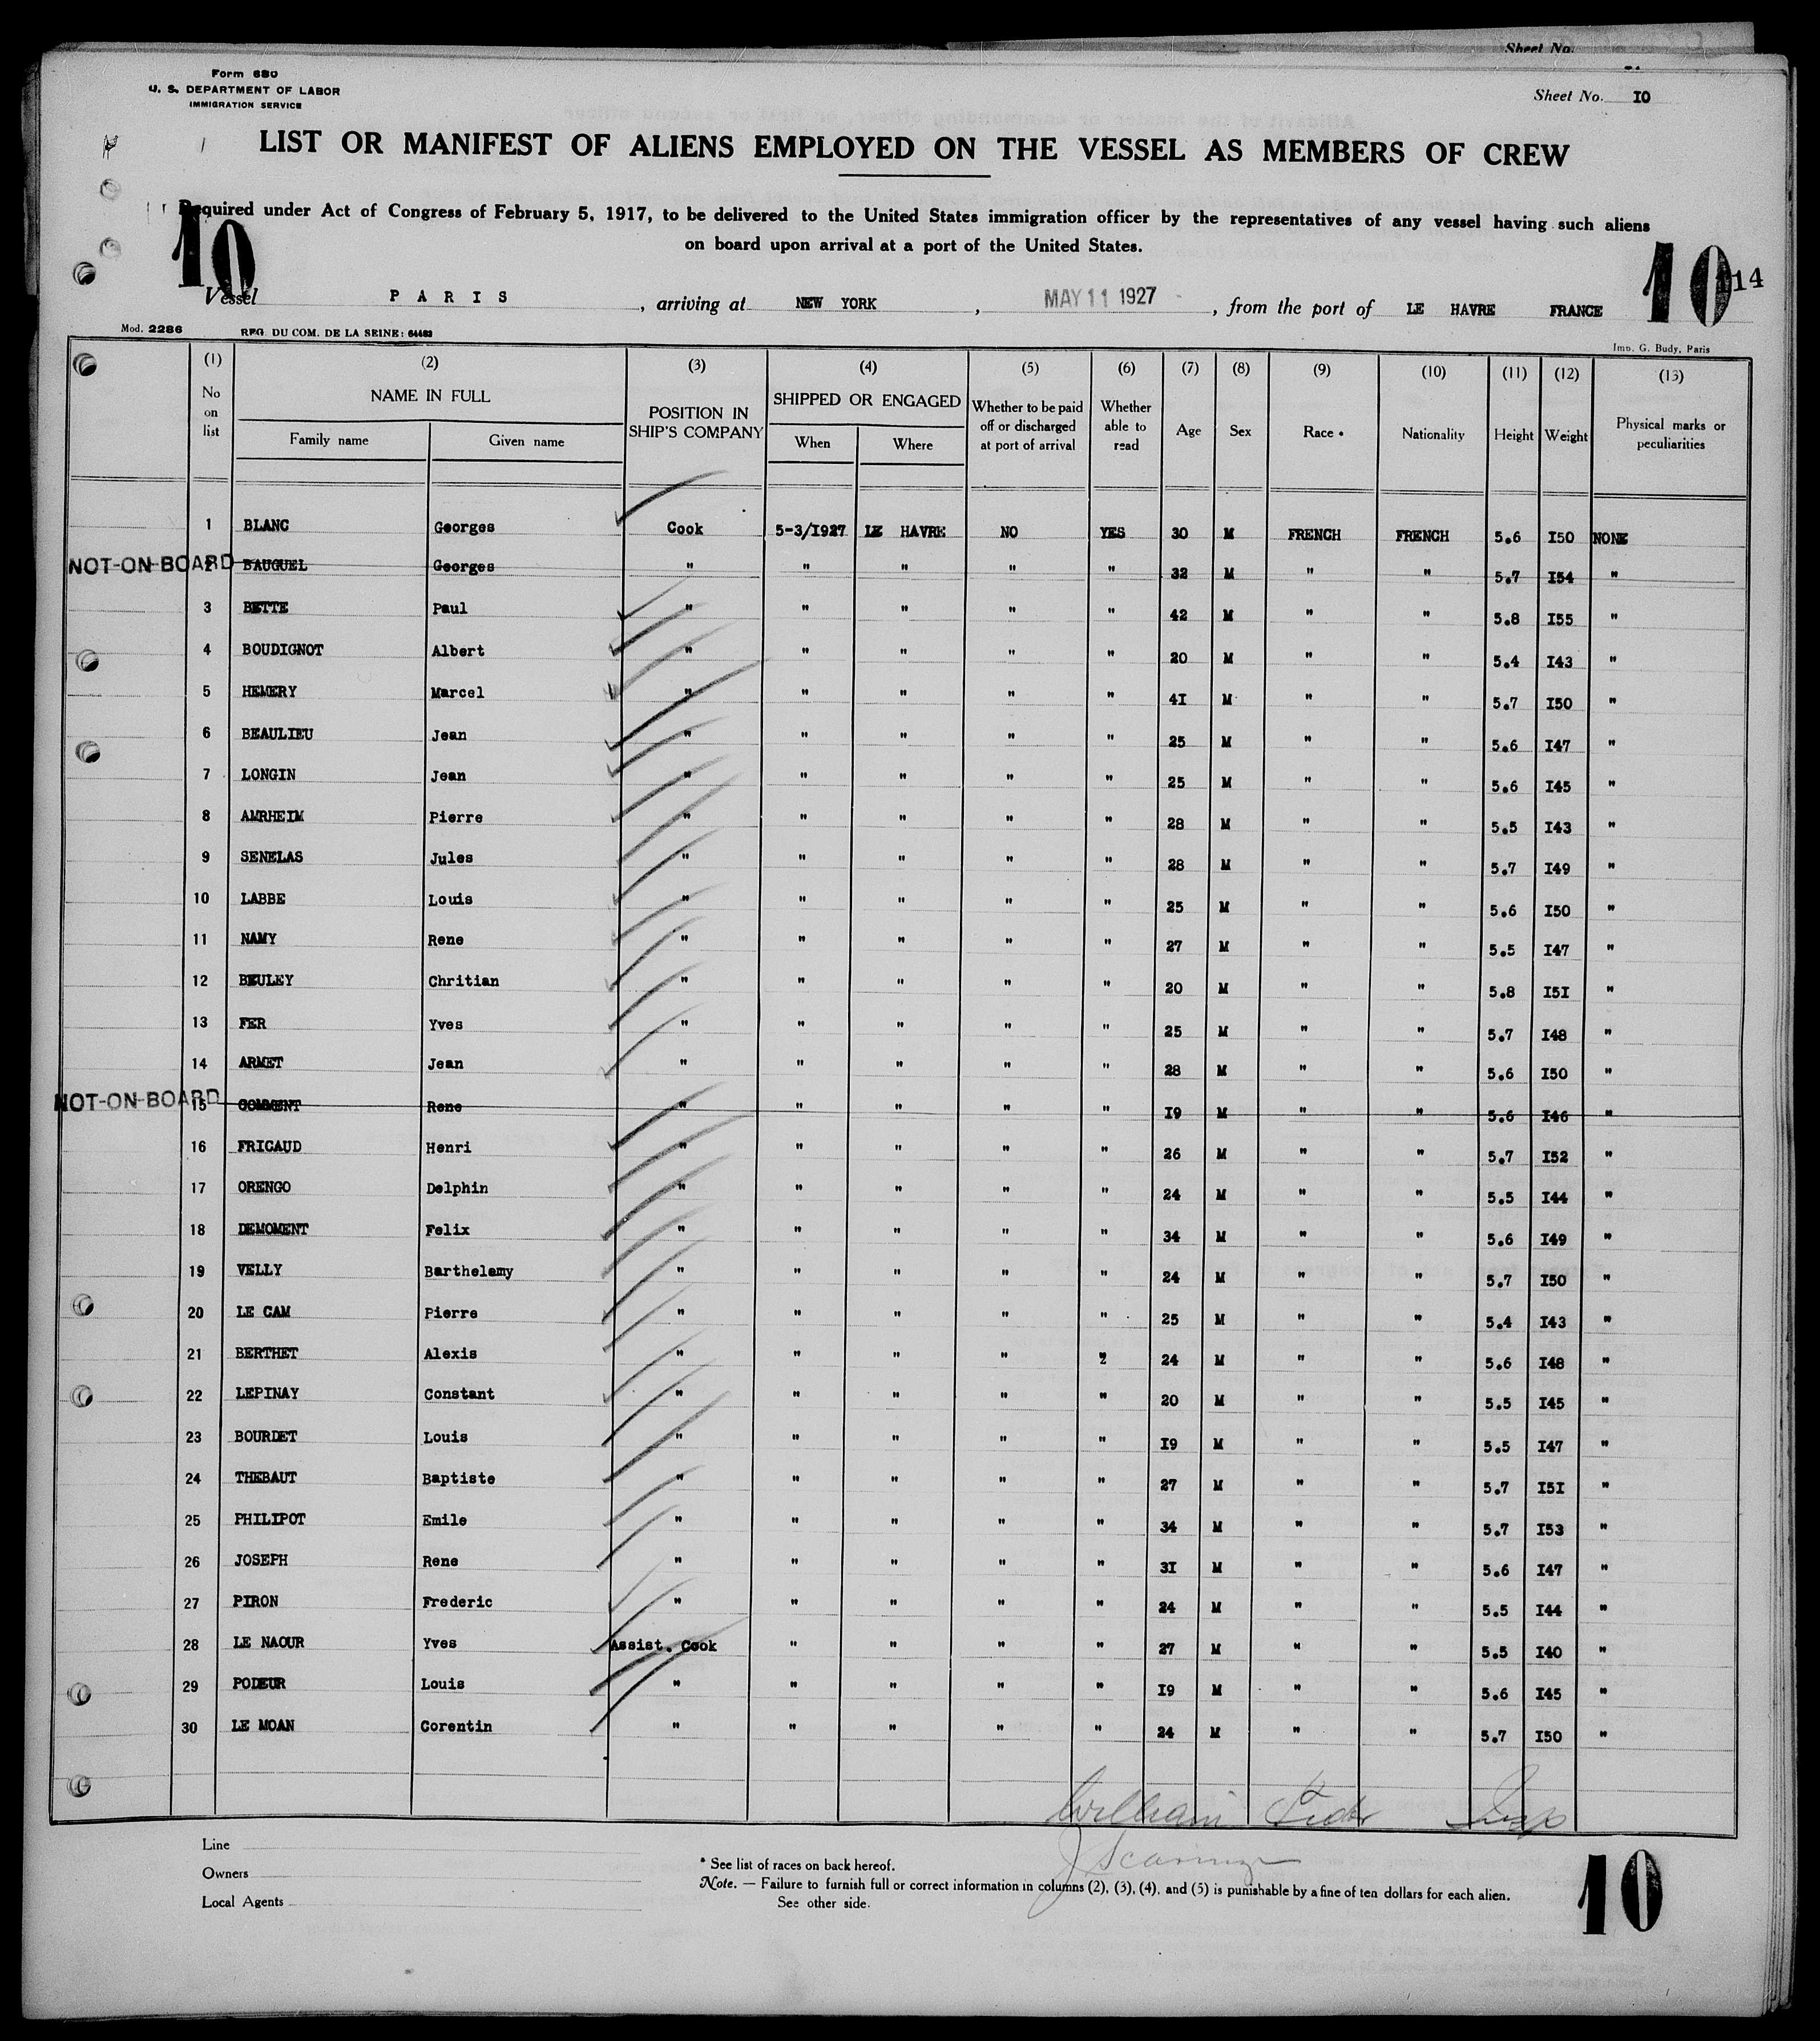 Sheet No.
Form 680
U. S. DEPARTMENT OF LABOR
IMMIGRATION SERVICE
Sheet No. I0
LIST OR MANIFEST OF ALIENS EMPLOYED ON THE VESSEL AS MEMBERS OF CREW
Required under Act of Congress of February 5, 1917, to be delivered to the United States immigration officer by the representatives of any vessel having such aliens
on board upon arrival at a port of the United States.
10 10 114
Vessel PARIS, arriving at NEW YORK, MAY 11 1927, from the port of LE HAVRE FRANCE
Mod. 2286 REG. DU COM. DE LA SEINE: 64462
Imp. G. Budy, Paris
(1) (2) (3) (4) (5) (6) (7) (8) (9) (10) (11) (12) (13)
No on list NAME IN FULL Family name Given name POSITION IN SHIP'S COMPANY SHIPPED OR ENGAGED When Where Whether to be paid off or discharged at port of arrival Whether able to read Age Sex Race * Nationality Height Weight Physical marks or peculiarities
1 BLANC Georges Cook 5-3/I927 LE HAVRE NO YES 30 M FRENCH FRENCH 5.6 I50 NONE
NOT-ON-BOARD 2 BAUGUEL Georges " " " " " 32 M " " 5.7 I54 "
3 BETTE Paul " " " " " 42 M " " 5.8 I55 "
4 BOUDIGNOT Albert " " " " " 20 M " " 5.4 I43 "
5 HEMERY Marcel " " " " " 4I M " " 5.7 I50 "
6 BEAULIEU Jean " " " " " 25 M " " 5.6 I47 "
7 LONGIN Jean " " " " " 25 M " " 5.6 I45 "
8 AMRHEIM Pierre " " " " " 28 M " " 5.5 I43 "
9 SENELAS Jules " " " " " 28 M " " 5.7 I49 "
10 LABBE Louis " " " " " 25 M " " 5.6 I50 "
11 NAMY Rene " " " " " 27 M " " 5.5 I47 "
12 BEULEY Chritian " " " " " 20 M " " 5.8 I5I "
13 FER Yves " " " " " 25 M " " 5.7 I48 "
14 ARMET Jean " " " " " 28 M " " 5.6 I50 "
NOT-ON-BOARD 15 COMMENT Rene " " " " " I9 M " " 5.6 I46 "
16 FRICAUD Henri " " " " " 26 M " " 5.7 I52 "
17 ORENGO Delphin " " " " " 24 M " " 5.5 I44 "
18 DEMOMENT Felix " " " " " 34 M " " 5.6 I49 "
19 VELLY Barthelemy " " " " " 24 M " " 5.7 I50 "
20 LE CAM Pierre " " " " " 25 M " " 5.4 I43 "
21 BERTHET Alexis " " " " " 24 M " " 5.6 I48 "
22 LEPINAY Constant " " " " " 20 M " " 5.5 I45 "
23 BOURDET Louis " " " " " I9 M " " 5.5 I47 "
24 THEBAUT Baptiste " " " " " 27 M " " 5.7 I5I "
25 PHILIPOT Emile " " " " " 34 M " " 5.7 I53 "
26 JOSEPH Rene " " " " " 3I M " " 5.6 I47 "
27 PIRON Frederic " " " " " 24 M " " 5.5 I44 "
28 LE NAOUR Yves Assist. Cook " " " " 27 M " " 5.5 I40 "
29 PODEUR Louis " " " " " I9 M " " 5.6 I45 "
30 LE MOAN Corentin " " " " " 24 M " " 5.7 I50 "
William
Line
Owners
Local Agents
* See list of races on back hereof.
Note. — Failure to furnish full or correct information in columns (2), (3), (4), and (5) is punishable by a fine of ten dollars for each alien.
See other side.
10